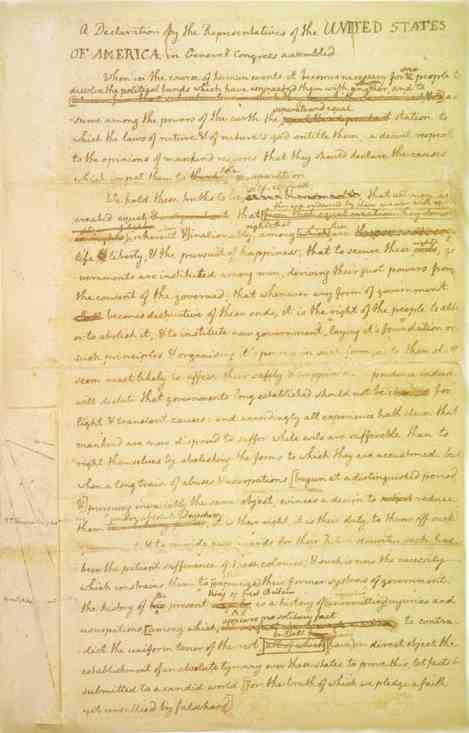 A Declaration by the Representatives of the UNITED STATES
OF AMERICA, in General Congress assembled.
When in the course of human events it becomes necessary for one people to
dissolve the political bands which have connected them with another, and to
as
separate and equal
sume among the powers of the earth the station to
which the laws of nature & of nature's god entitle them, a decent respect
to the opinions of mankind requires that they should declare the causes
which impel them to the separation.
self-evident
We hold these truths to be that all men are
created equal that
life & liberty, & the pursuit of happiness; that to secure these rights, go
vernments are instituted among men, deriving their just powers from
the consent of the governed; that whenever any form of government
becomes destructive of these ends, it is the right of the people to alter
or to abolish it, & to institute new government, laying it's foundation on
such principles & organising it's powers in such form, as to them shall
seem most likely to effect their safety & happiness. prudence indeed
will dictate that governments long established should not be changed for
light & transient causes: and accordingly all experience hath shewn that
mankind are more disposed to suffer while evils are sufferable than to
right themselves by abolishing the forms to which they are accustomed. but
when a long train of abuses & usurpations [begun at a distinguished period
&] pursuing invariably the same object, evinces a design to reduce
them it is their right, it is their duty, to throw off such
& to provide new guards for their future security. such has
been the patient sufferance of these colonies; & such is now the necessity
which constrains them to [expunge] their former systems of government.
King of Great Britain
the history of the present is a history of injuries and
appears no solitary fact
usurpations [among which, to contra-
dict the uniform tenor of the rest in direct object the
establishment of an absolute tyranny over these states. to prove this, let facts be
submitted to a candid world [for the truth of which we pledge a faith
yet unsullied by falsehood]